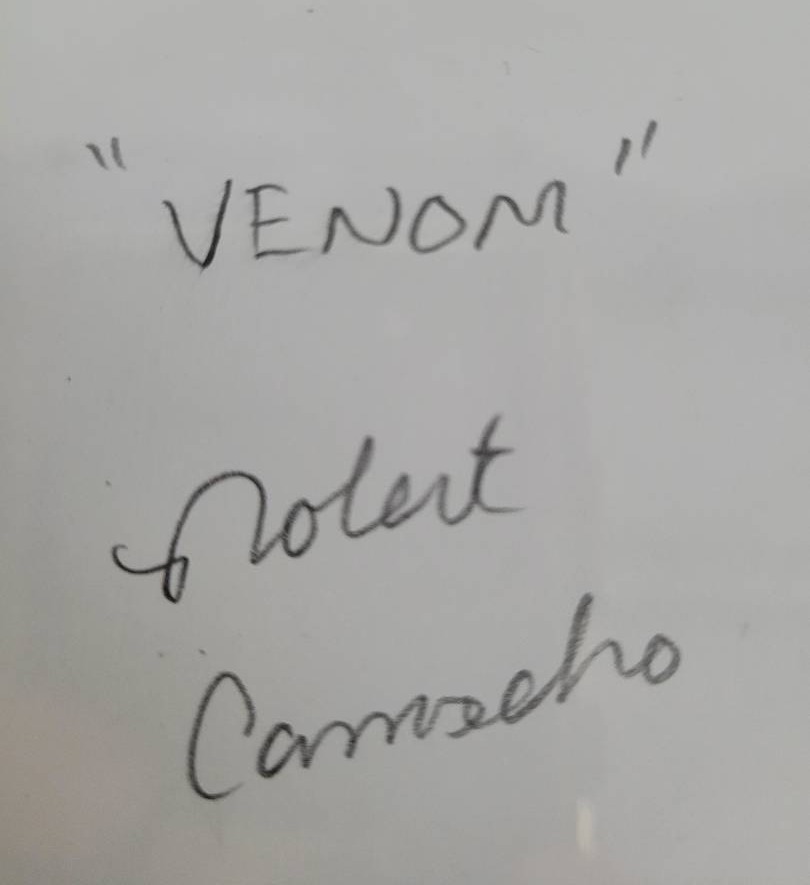 "VENOM"
Robert
Camacho